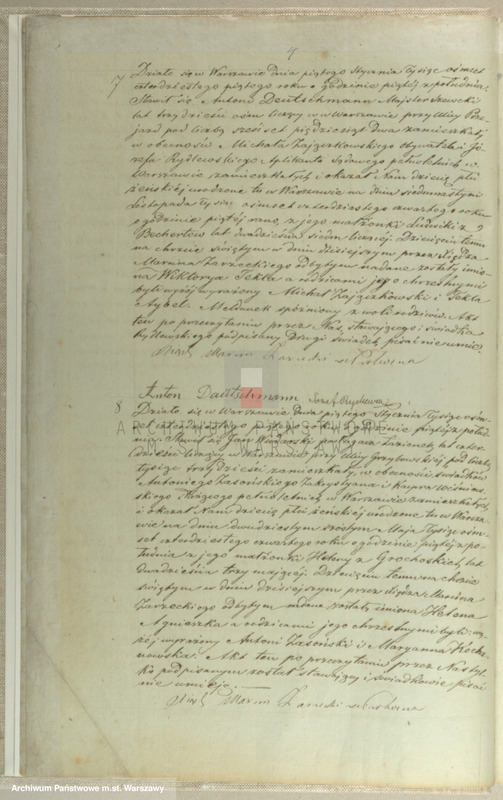 4
7 Działo się w Warszawie dnia piątego Stycznia tysiąc ośmset
czterdziestego piątego roku o godzinie piątéj z południa.
Stawił się Antoni Deutschmann Majster Szewcki
lat trzydzieści ośm liczący w Warszawie przy Ulicy
pod liczbą sześćset pięćdziesiąt dwa zamieszkały
w obecności Michała Zajączkowskiego Obywatela i Jó-
zefa Rydlewskiego Aplikanta Sądowego pełnoletnich w
Warszawie zamieszkałych i okazał Nam dziecię płci
żeńskiéj urodzone tu w Warszawie na dniu siedmnastym
Listopada tysiąc ośmset czterdziestego czwartego roku
o godzinie piątéj rano, z jego małżonki Ludwiki z
lat dwadzieścia siedm liczącéj. Dziecięciu temu
na chrzcie świętym w dniu dzisiejszym przez Xiędza
Marcina Zarzeckiego odbytym nadane zostały imio-
na Wiktorya Tekla a rodzicami jego chrzestnymi
byli wyżéj wyrażony Michał Zajączkowski i Tekla
Meldunek spóźniony z woli rodziców. Akt
ten po przeczytaniu przez Nas, stawającego i świadka
Rydlewskiego podpisany Drugi świadek pisać nieumie.
Marcin
Anton Deutschmann Józef Rydlewski
8 Działo się w Warszawie dnia piątego Stycznia tysiąc ośm-
set czterdziestego piątego roku o godzinie piątéj z połud-
nia. Stawił się Jan lat czter-
dzieści liczący w Warszawie przy Ulicy Grzybowskiéj pod liczbą
tysiąc trzydzieści zamieszkały, w obecności świadków
Antoniego Zasońskiego Zakrystyana i Kacpra Wiśniew-
skiego pełnoletnich w Warszawie zamieszkałych,
i okazał Nam dziecię płci żeńskiéj urodzone tu w Warsza-
wie na dniu dwudziestym szóstym Maja tysiąc ośm-
set czterdziestego czwartego roku o godzinie piątéj z po-
łudnia z jego małżonki Heleny z Grochoskich, lat
dwadzieścia trzy mającéj. Dziecięciu temu na chrzcie
świętym w dniu dzisiejszym przez Xiędza Marcina
Zarzeckiego odbytym nadane zostały imiona Helena
Agnieszka a rodzicami jego chrzestnymi byli: wy-
żéj wyrażony Antoni Zasoński i Maryanna Koch-
nowska. Akt ten po przeczytaniu przez Nas tyl-
ko podpisanym został stawający i świadkowie pisać
nie umieją.
Marcin
ARCHIWUM PAŃSTWOWE
Archiwum Państwowe m.st. Warszawy